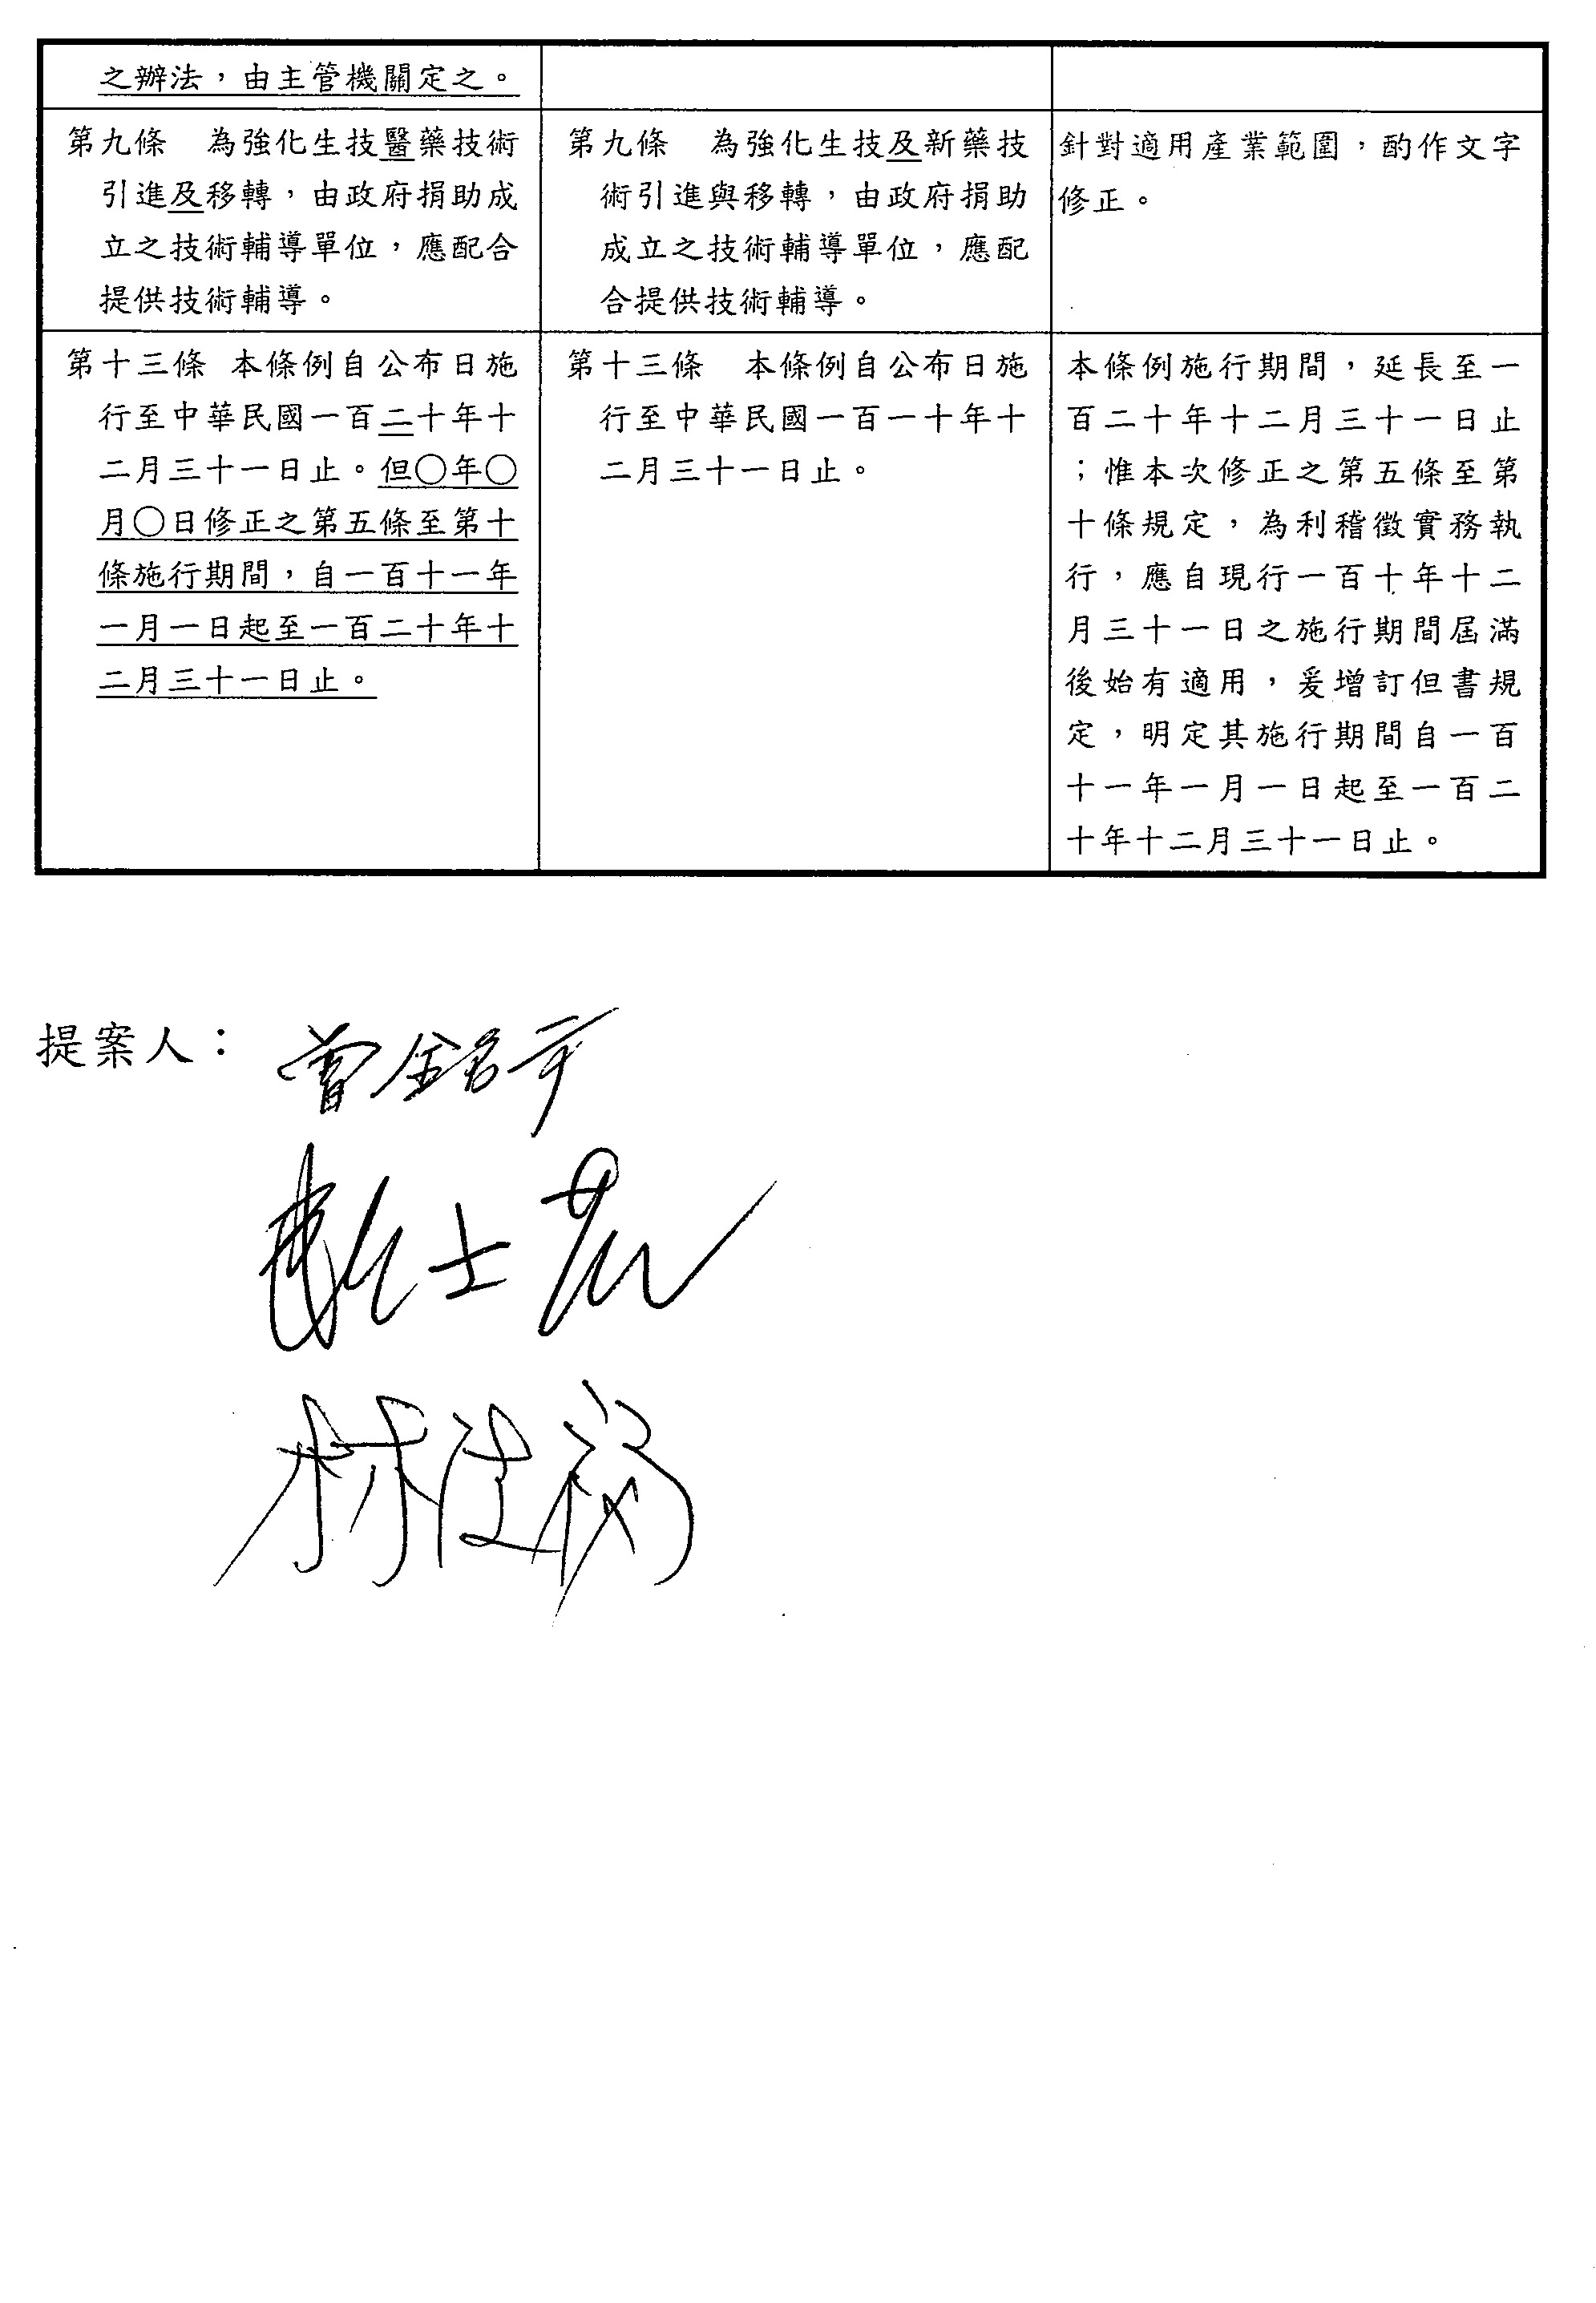 之辦法，由主管機關定之。
第九條　為強化生技醫藥技術
引進及移轉，由政府捐助成
立之技術輔導單位，應配合
提供技術輔導。
第九條　為強化生技及新藥技
術引進與移轉，由政府捐助
成立之技術輔導單位，應配
合提供技術輔導。
針對適用產業範圍，酌作文字
修正。
第十三條　本條例自公布日施
行至中華民國一百二十年十
二月三十一日止。但○年○
月○日修正之第五條至第十
條施行期間，自一百十一年
一月一日起至一百二十年十
二月三十一日止。
第十三條　本條例自公布日施
行至中華民國一百一十年十
二月三十一日止。
本條例施行期間，延長至一
百二十年十二月三十一日止
；惟本次修正之第五條至第
十條規定，為利稽徵實務執
行，應自現行一百十年十二
月三十一日之施行期間屆滿
後始有適用，爰增訂但書規
定，明定其施行期間自一百
十一年一月一日起至一百二
十年十二月三十一日止。
提案人：
曾銘宗
賴士葆